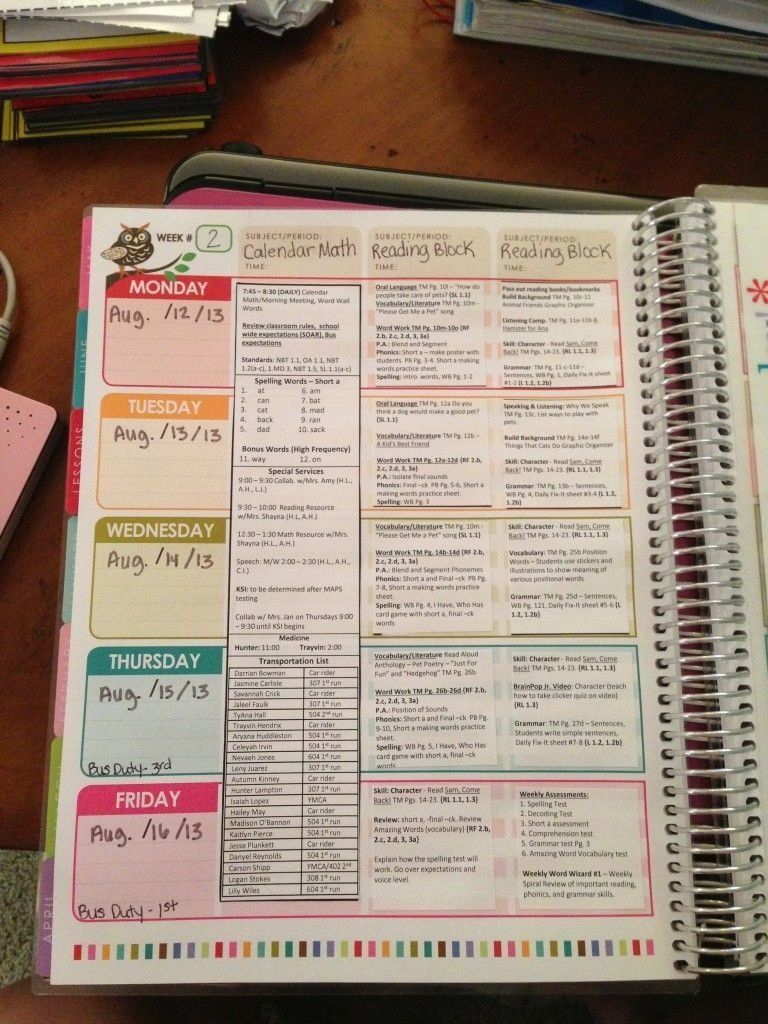 WEEK # 2
SUBJECT/PERIOD:
Calendar Math
TIME:
SUBJECT/PERIOD:
Reading Block
TIME:
SUBJECT/PERIOD:
Reading Block
TIME:
MONDAY
Aug. /12/13
TUESDAY
Aug. /13/13
WEDNESDAY
Aug. /14/13
THURSDAY
Aug. /15/13
Bus Duty - 3rd
FRIDAY
Aug. /16/13
Bus Duty - 1st
7:45 – 8:30 (DAILY) Calendar
Math/Morning Meeting, Word Wall
Words
Review classroom rules, school
wide expectations (SOAR), Bus
expectations
Standards: NBT 1.1, OA 1.1, NBT
1.2(a-c), 1.MD 3, NBT 1.5, SL 1.1(a-c)
Spelling Words – Short a
1. at 6. am
2. can 7. bat
3. cat 8. mad
4. back 9. ran
5. dad 10. sack
Bonus Words (High Frequency)
11. way 12. on
Special Services
9:00 – 9:30 Collab. w/Mrs. Amy (H.L.,
A.H., L.J.)
9:30 – 10:00 Reading Resource
w/Mrs. Shayna (H.L, A.H.)
12:30 – 1:30 Math Resource w/Mrs.
Shayna (H.L, A.H.)
Speech: M/W 2:00 – 2:30 (H.L., A.H.,
C.I.)
KSI: to be determined after MAPS
testing
Collab w/ Mrs. Jan on Thursdays 9:00
– 9:30 until KSI begins
Medicine
Hunter: 11:00 Trayvin: 2:00
Transportation List
Darrian Bowman Car rider
Jasmine Carlisle 307 1st run
Savannah Crick Car rider
Jaleel Faulk 307 1st run
TyAna Hall 504 2nd run
Trayvin Hendrix Car rider
Aryana Huddleston 504 1st run
Celeyah Irvin 504 1st run
Nevaeh Jones 604 1st run
Leny Juarez 307 1st run
Autumn Kinney Car rider
Hunter Lampton 307 1st run
Isaiah Lopez YMCA
Hailey May Car rider
Madison O'Bannon 504 1st run
Kaitlyn Pierce 504 1st run
Jesse Plunkett Car rider
Danyel Reynolds 504 1st run
Carson Shipp YMCA/402 2nd
Logan Stokes 308 1st run
Lilly Wiles 604 1st run
Oral Language TM Pg. 10l – "How do
people take care of pets? {SL 1.1}
Vocabulary/Literature TM Pg. 10m -
"Please Get Me a Pet" song
Word Work TM Pg. 10m-10o {RF
2.b, 2.c, 2.d, 3, 3a}
P.A.: Blend and Segment
Phonics: Short a – make poster with
students. PB Pg. 3-4. Short a making
words practice sheet.
Spelling: intro. words, WB Pg. 1-2
Pass out reading books/bookmarks
Build Background TM Pg. 10r-11
Animal Friends Graphic Organizer
Listening Comp. TM Pg. 11a-11b A
Hamster for Ana
Skill: Character - Read Sam, Come
Back! TM Pgs. 14-23. {RL 1.1, 1.3}
Grammar: TM Pg. 11c-11d –
Sentences, WB Pg. 1, Daily Fix-It sheet
#1-2 {L 1.2, 1.2b}
Oral Language TM Pg. 12a Do you
think a dog would make a good pet?
{SL 1.1}
Vocabulary/Literature TM Pg. 12b –
A Kid's Best Friend
Word Work TM Pg. 12a-12d {RF 2.b,
2.c, 2.d, 3, 3a}
P.A.: Isolate final sounds
Phonics: Final –ck PB Pg. 5-6, Short a
making words practice sheet.
Spelling: WB Pg. 3
Speaking & Listening: Why We Speak
TM Pg. 13c. List ways to play with
pets.
Build Background TM Pg. 14e-14f
Things That Cats Do Graphic Organizer
Skill: Character - Read Sam, Come
Back! TM Pgs. 14-23. {RL 1.1, 1.3}
Grammar: TM Pg. 13b – Sentences,
WB Pg. 4, Daily Fix-It sheet #3-4 {L 1.2,
1.2b}
Vocabulary/Literature TM Pg. 10m -
"Please Get Me a Pet" song {SL 1.1}
Word Work TM Pg. 14b-14d {RF 2.b,
2.c, 2.d, 3, 3a}
P.A.: Blend and Segment Phonemes
Phonics: Short a and Final –ck PB Pg.
7-8, Short a making words practice
sheet.
Spelling: WB Pg. 4, I Have, Who Has
card game with short a, final –ck
words
Skill: Character - Read Sam, Come
Back! TM Pgs. 14-23. {RL 1.1, 1.3}
Vocabulary: TM Pg. 25b Position
Words – Students use stickers and
illustrations to show meaning of
various positional words
Grammar: TM Pg. 25d – Sentences,
WB Pg. 121, Daily Fix-It sheet #5-6 {L
1.2, 1.2b}
Vocabulary/Literature Read Aloud
Anthology – Pet Poetry – "Just For
Fun" and "Hedgehog" TM Pg. 26b
Word Work TM Pg. 26b-26d {RF 2.b,
2.c, 2.d, 3, 3a}
P.A.: Position of Sounds
Phonics: Short a and Final –ck PB Pg.
9-10, Short a making words practice
sheet.
Spelling: WB Pg. 5, I Have, Who Has
card game with short a, final –ck
words
Skill: Character - Read Sam, Come
Back! TM Pgs. 14-23. {RL 1.1, 1.3}
BrainPop Jr. Video: Character (teach
how to take clicker quiz on video)
{RL 1.3}
Grammar: TM Pg. 27d – Sentences,
Students write simple sentences,
Daily Fix-It sheet #7-8 {L 1.2, 1.2b}
Skill: Character - Read Sam, Come
Back! TM Pgs. 14-23. {RL 1.1, 1.3}
Review: short a, -final –ck. Review
Amazing Words (vocabulary) {RF 2.b,
2.c, 2.d, 3, 3a}
Explain how the spelling test will
work. Go over expectations and
voice level.
Weekly Assessments:
1. Spelling Test
2. Decoding Test
3. Short a assessment
4. Comprehension test
5. Grammar test Pg. 3
6. Amazing Word Vocabulary test
Weekly Word Wizard #1 – Weekly
Spiral Review of important reading,
phonics, and grammar skills.
JUNE
LESSONS
APRIL